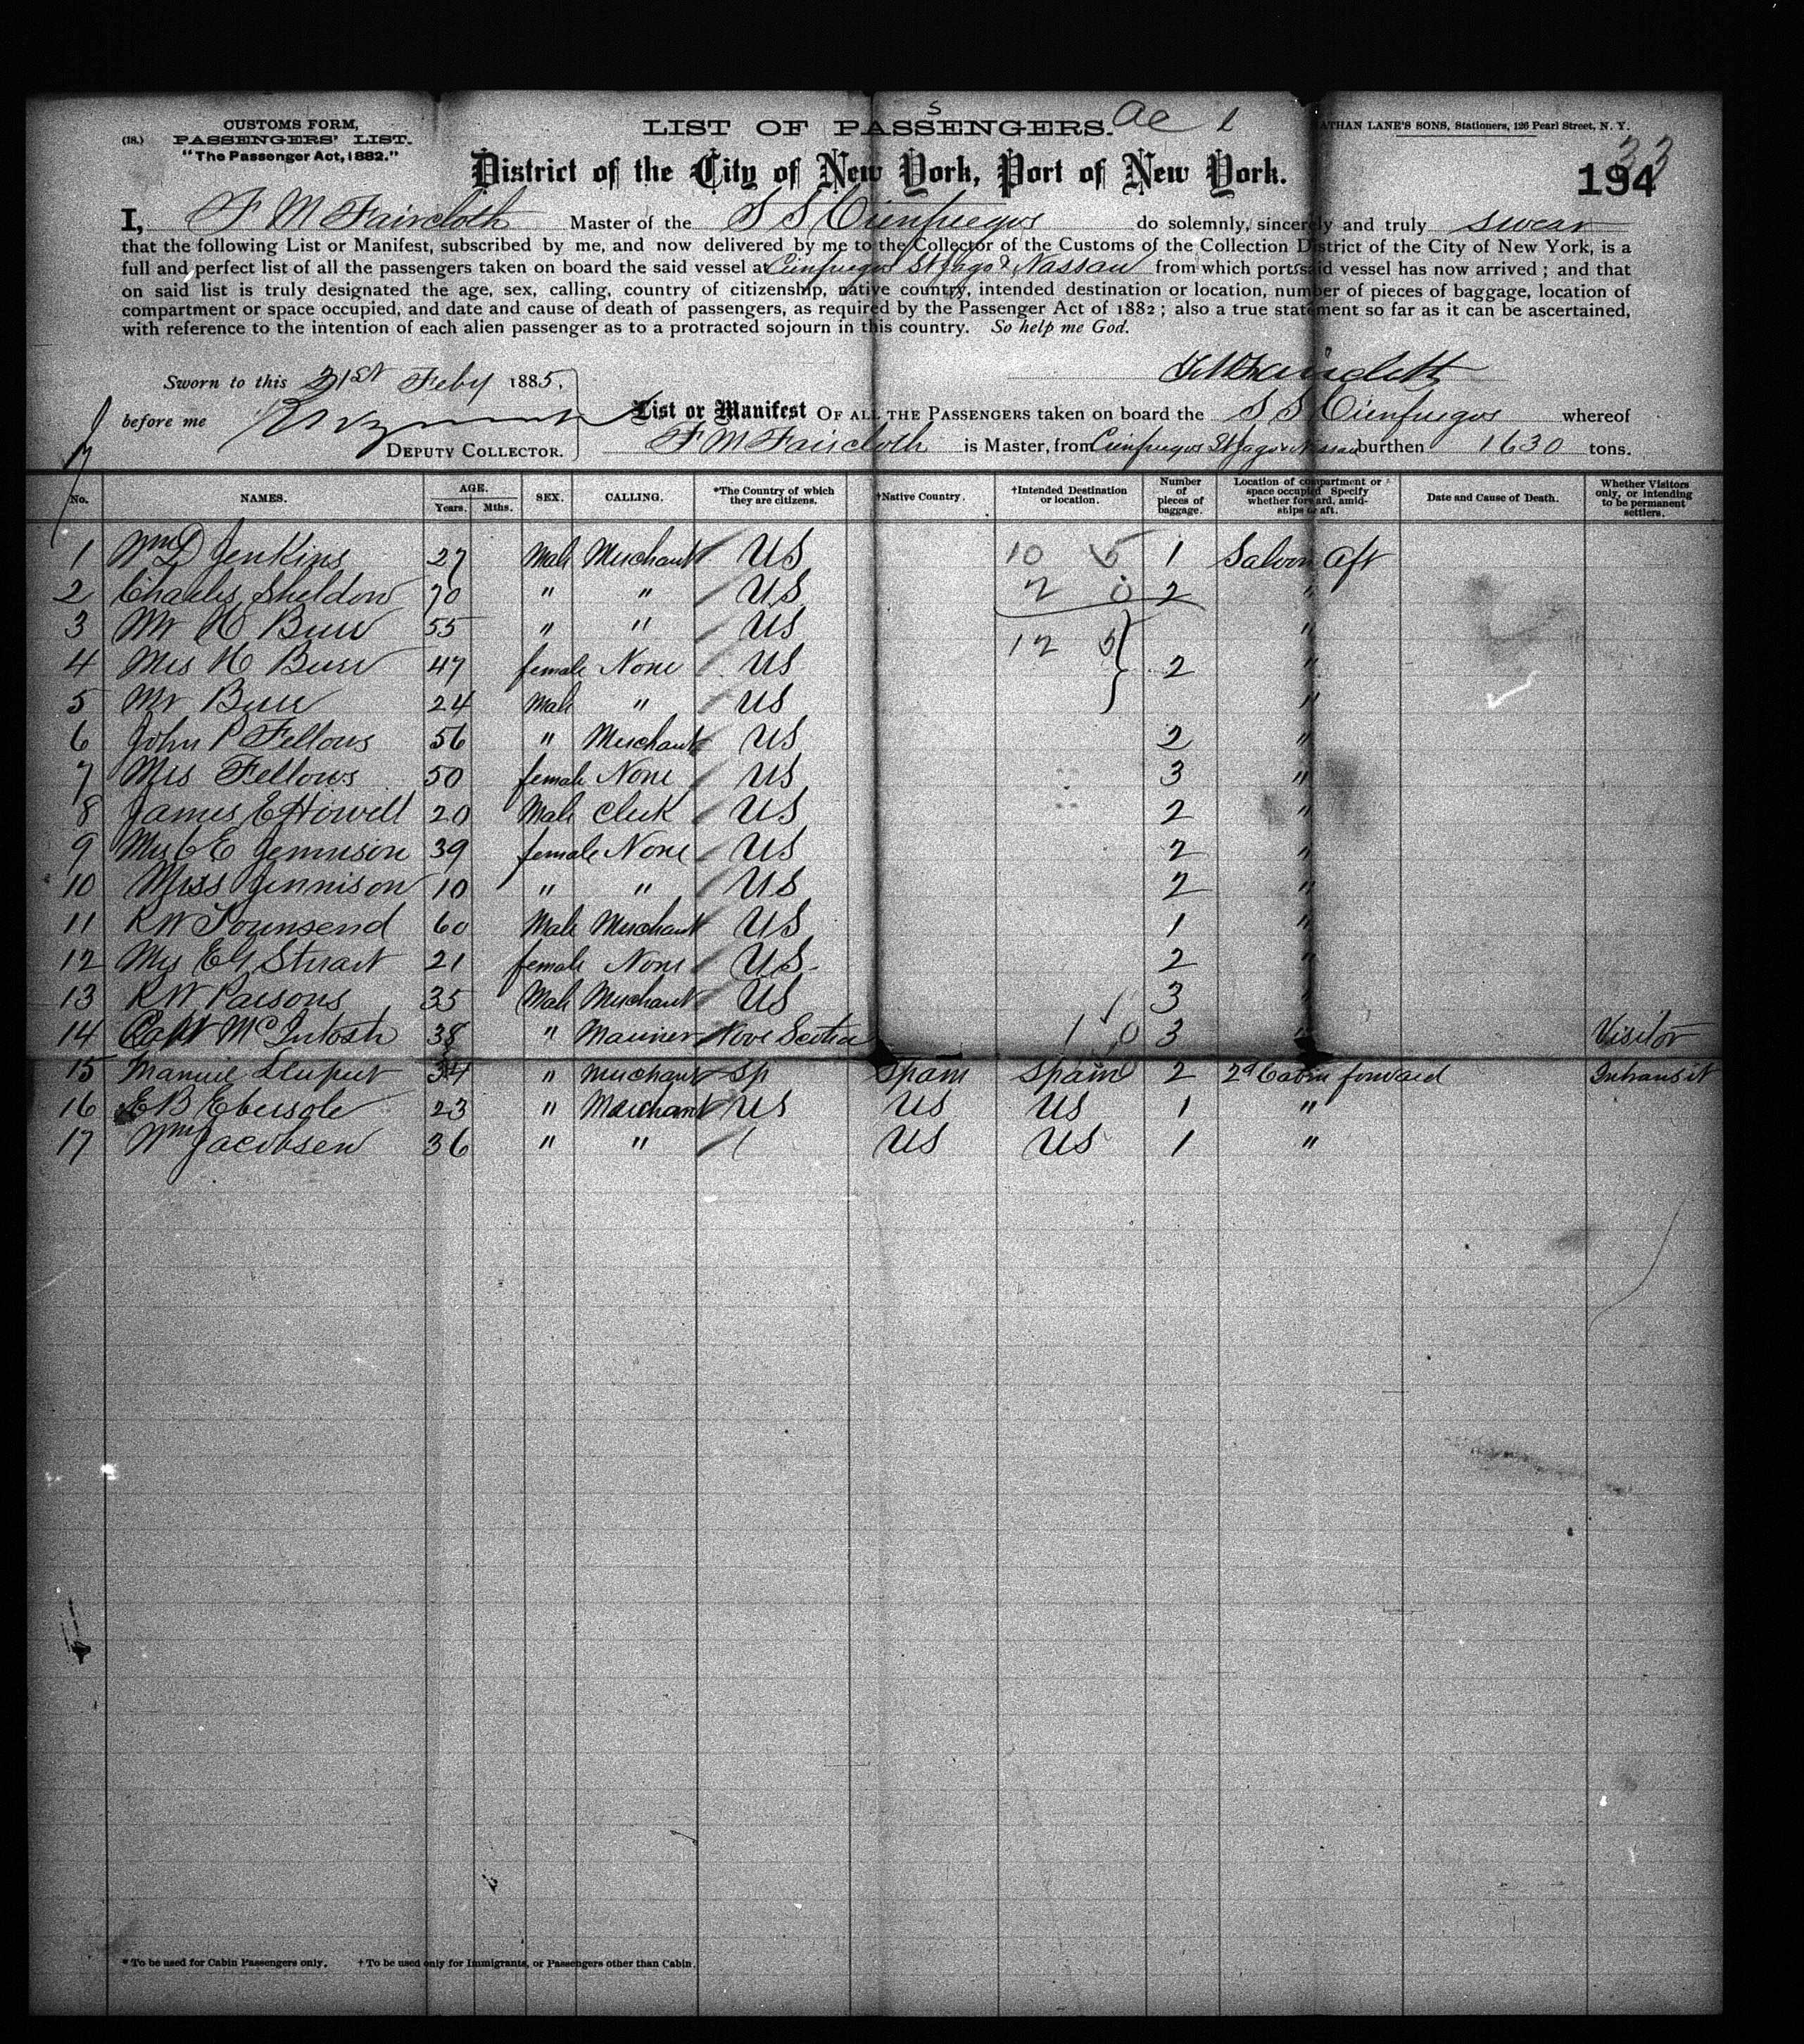 CUSTOMS FORM,
(18.) PASSENGERS' LIST.
"The Passenger Act, 1882."
LIST OF PASSENGERS.
NATHAN LANE'S SONS, Stationers, 126 Pearl Street, N. Y.
33
District of the City of New York, Port of New York.
194
I, F M Faircloth Master of the S S Cienfuegos do solemnly, sincerely and truly swear
that the following List or Manifest, subscribed by me, and now delivered by me to the Collector of the Customs of the Collection District of the City of New York, is a
full and perfect list of all the passengers taken on board the said vessel at Cienfuegos St Jago & Nassau from which ports said vessel has now arrived; and that
on said list is truly designated the age, sex, calling, country of citizenship, native country, intended destination or location, number of pieces of baggage, location of
compartment or space occupied, and date and cause of death of passengers, as required by the Passenger Act of 1882; also a true statement so far as it can be ascertained,
with reference to the intention of each alien passenger as to a protracted sojourn in this country. So help me God.
F M Faircloth
Sworn to this 21st Feby 1885,
before me
DEPUTY COLLECTOR.
List or Manifest OF ALL THE PASSENGERS taken on board the S S Cienfuegos whereof
F M Faircloth is Master, from Cienfuegos St Jago & Nassau burthen 1630 tons.
No. NAMES. AGE. Years. Mths. SEX. CALLING. *The Country of which they are citizens. †Native Country. †Intended Destination or location. Number of pieces of baggage. Location of compartment or space occupied Specify whether forward, amidships or aft. Date and Cause of Death. Whether Visitors only, or intending to be permanent settlers.
1 Wm D Jenkins 27 Male Merchant US 10 5 1 Saloon Aft
2 Charles Sheldon 70 " " US 2 0 2 "
3 Mr H Burr 55 " " US 12 5 "
4 Mrs H Burr 47 female None US 2 "
5 Mr Burr 24 Male " US "
6 John P Fellows 56 " Merchant US 2 "
7 Mrs Fellows 50 female None US 3 "
8 James E Howell 20 Male Clerk US 2 "
9 Mrs C E Jennison 39 female None US 2 "
10 Miss Jennison 10 " " US 2 "
11 R W Townsend 60 Male Merchant US 1 "
12 Mrs E G Stuart 21 female None US 2 "
13 R W Parsons 35 Male Merchant US 3 "
14 Capt McIntosh 38 " Mariner Nova Scotia 1 0 3 " Visitor
15 Manuel 34 " Merchant Sp Spain Spain 2 2d Cabin forward Intransit
16 E B Ebersole 23 " Merchant US US US 1 "
17 Wm Jacobsen 36 " " US US 1 "
* To be used for Cabin Passengers only. † To be used only for Immigrants, or Passengers other than Cabin.